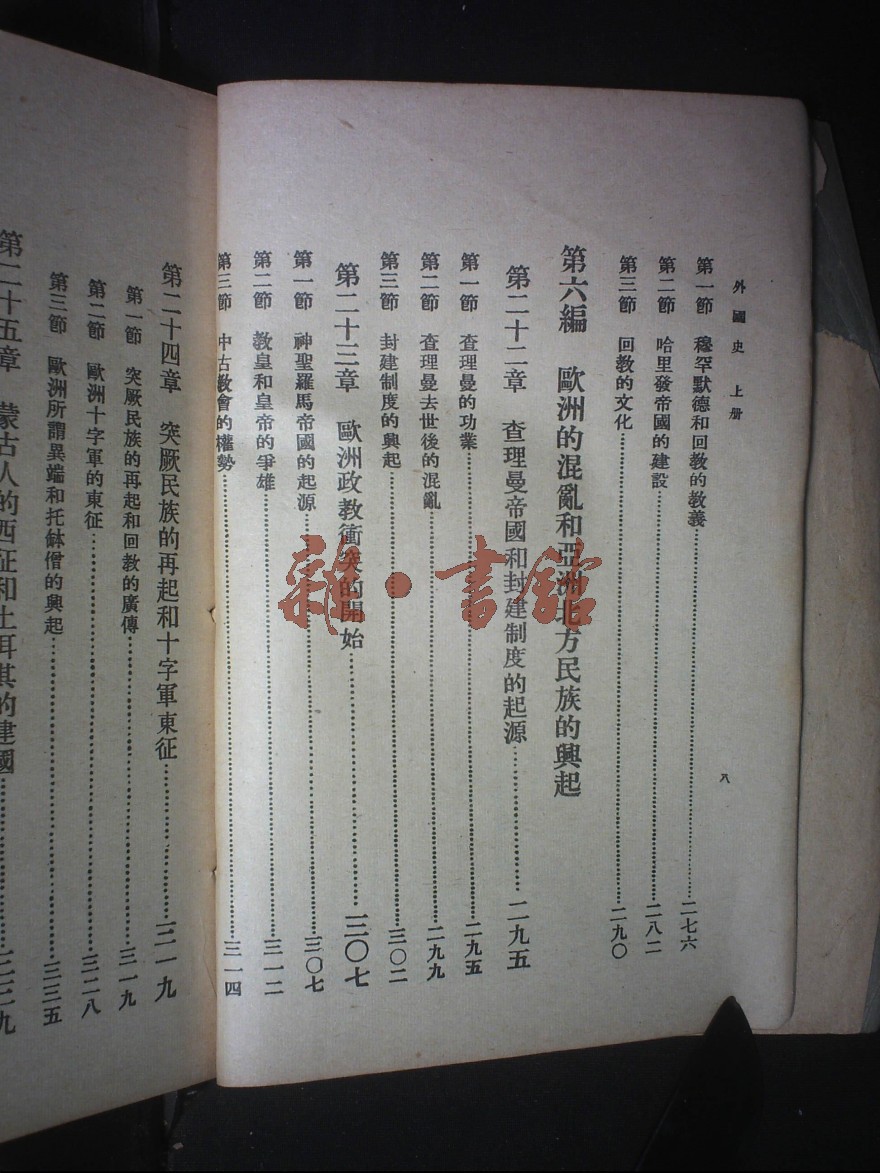 外國史 上册
八
第一節 穆罕默德和回教的教義……二七六
第二節 哈里發帝國的建設……二八二
第三節 回教的文化……二九〇
第六編 歐洲的混亂和亞洲北方民族的興起
第二十二章 查理曼帝國和封建制度的起源……二九五
第一節 查理曼的功業……二九五
第二節 查理曼去世後的混亂……二九九
第三節 封建制度的興起……三〇二
第二十三章 歐洲政教衝突的開始……三〇七
第一節 神聖羅馬帝國的起源……三〇七
第二節 教皇和皇帝的爭雄……三一二
第三節 中古教會的權勢……三一四
第二十四章 突厥民族的再起和十字軍東征……三一九
第一節 突厥民族的再起和回教的廣傳……三一九
第二節 歐洲十字軍的東征……三二八
第三節 歐洲所謂異端和托鉢僧的興起……三三五
第二十五章 蒙古人的西征和土耳其的建國……三三九
雜·書館